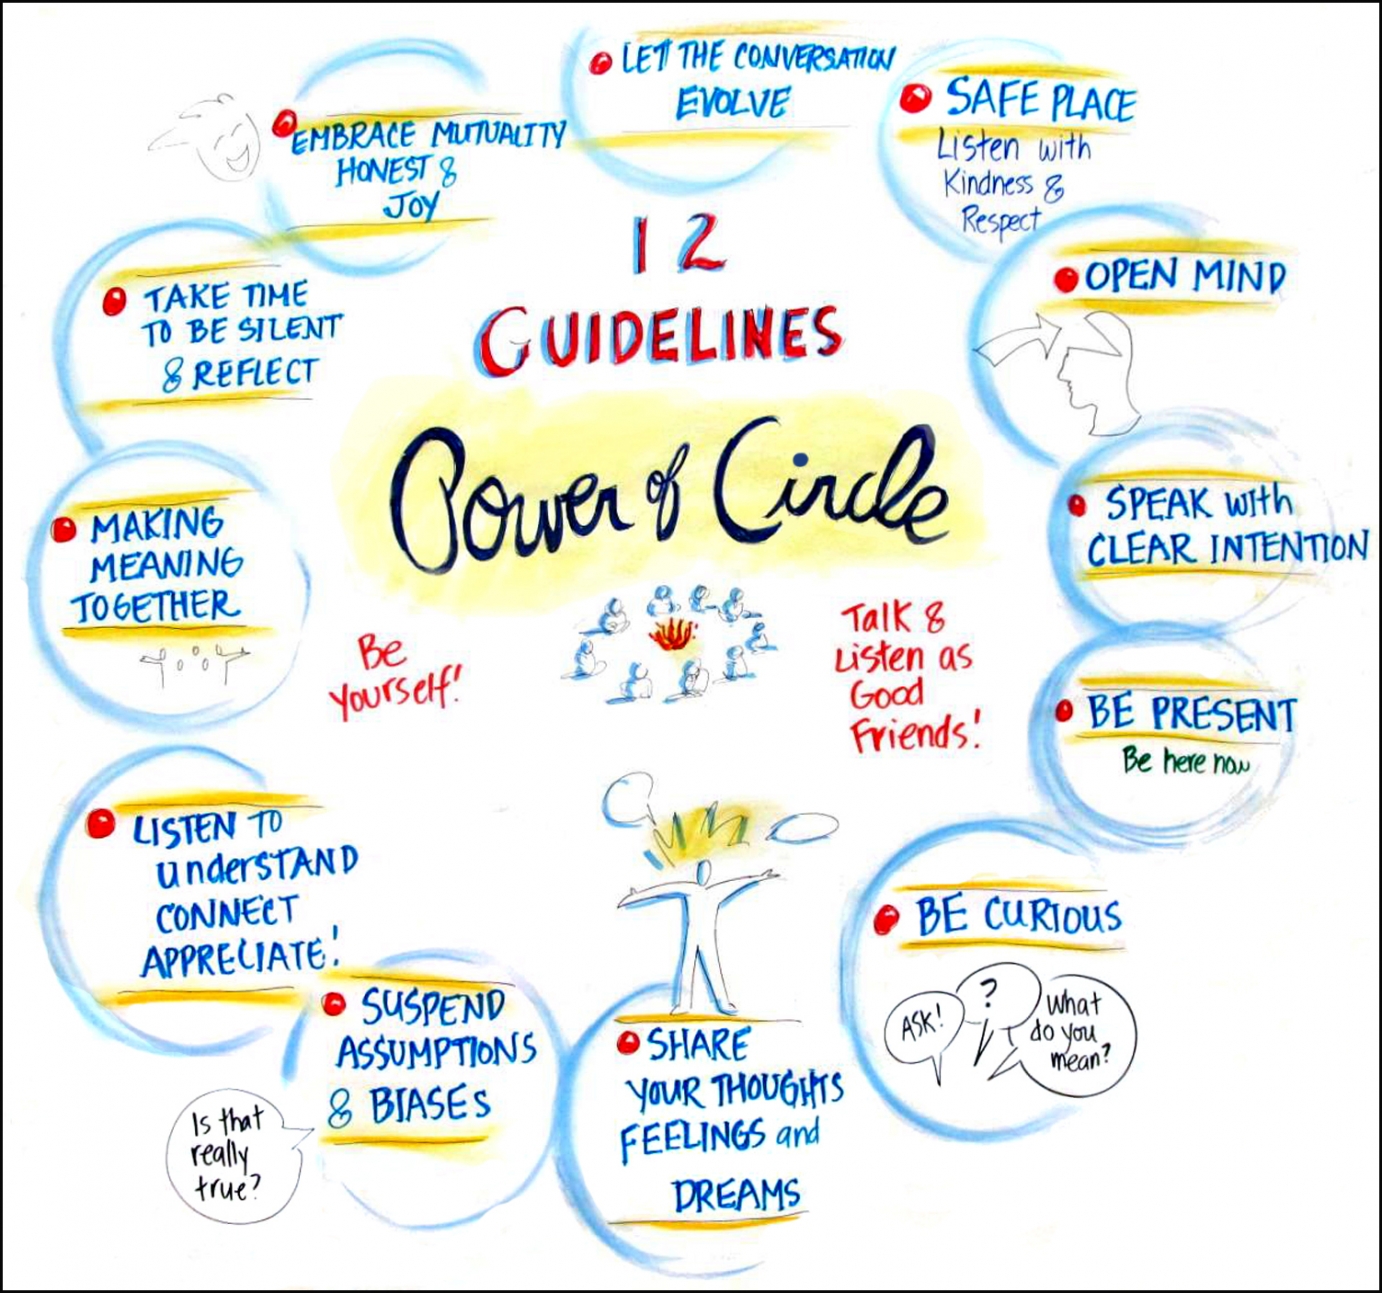 12
GUIDELINES
Power of Circle
LET THE CONVERSATION
EVOLVE
SAFE PLACE
Listen with
Kindness &
Respect
OPEN MIND
SPEAK with
CLEAR INTENTION
BE PRESENT
Be here now
BE CURIOUS
ASK!
?
What
do you
mean?
SHARE
YOUR THOUGHTS
FEELINGS and
DREAMS
SUSPEND
ASSUMPTIONS
& BIASES
Is that
really
true?
LISTEN TO
understAND
CONNECT
APPRECIATE!
MAKING
MEANING
TOGETHER
TAKE TIME
TO BE SILENT
& REFLECT
EMBRACE MUTUALITY
HONEST &
JOY
Be
yourself!
Talk &
Listen as
Good
Friends!